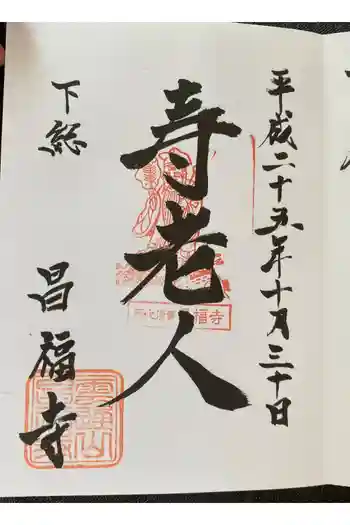 平成二十五年十月三十日
寿老人
福寺
下総
昌福寺